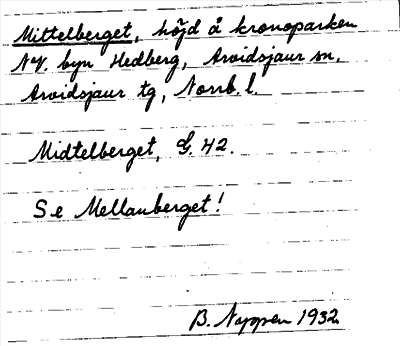 Mittelberget, höjd å kronoparken
NV. byn Hedberg, Arvidsjaur sn,
Arvidsjaur tg, Norrb. l.
Midtelberget, G. 42.
Se Mellanberget!
B. Nappen 1932